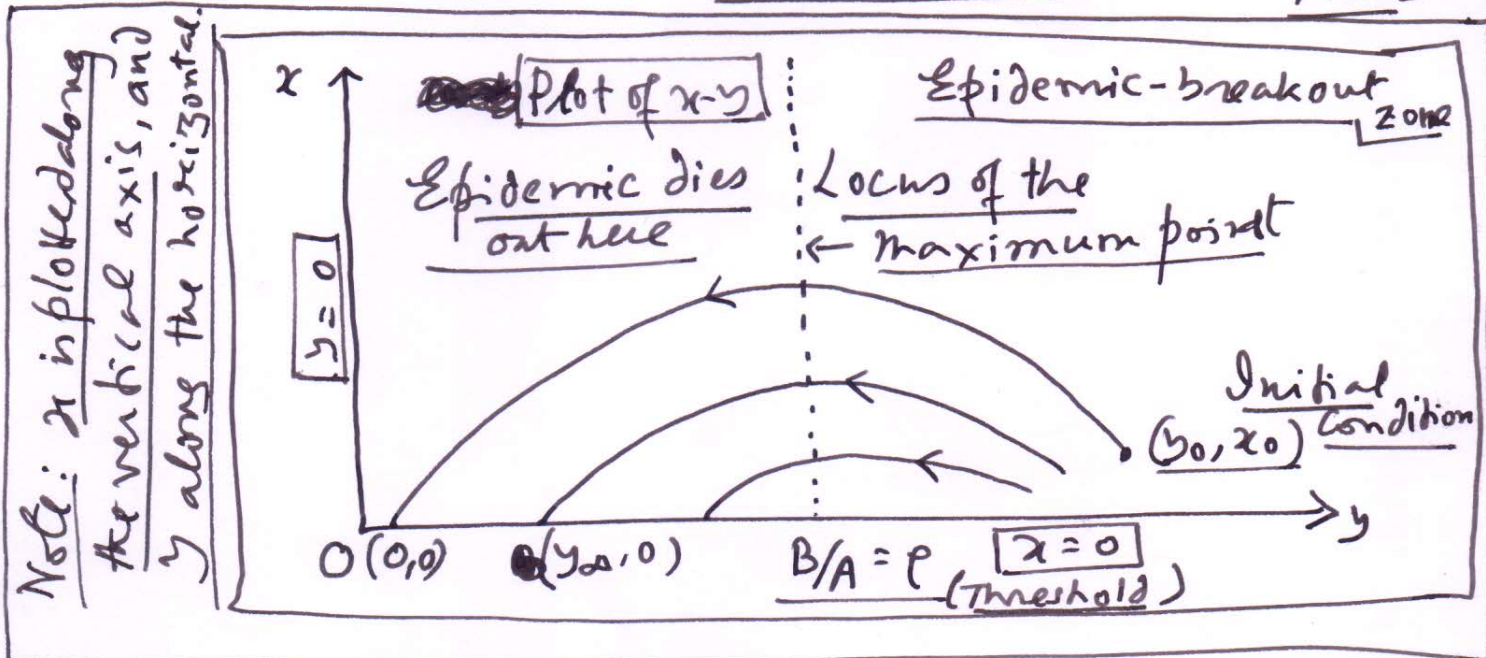 Note: x is plotted along
the vertical axis, and
y along the horizontal.
x
Plot of x-y
Epidemic-breakout
zone
Epidemic dies
out here
Locus of the
← maximum point
y = 0
Initial
Condition
(y₀, x₀)
y
O (0,0)
(y∞, 0)
B/A = ρ
(Threshold)
x = 0